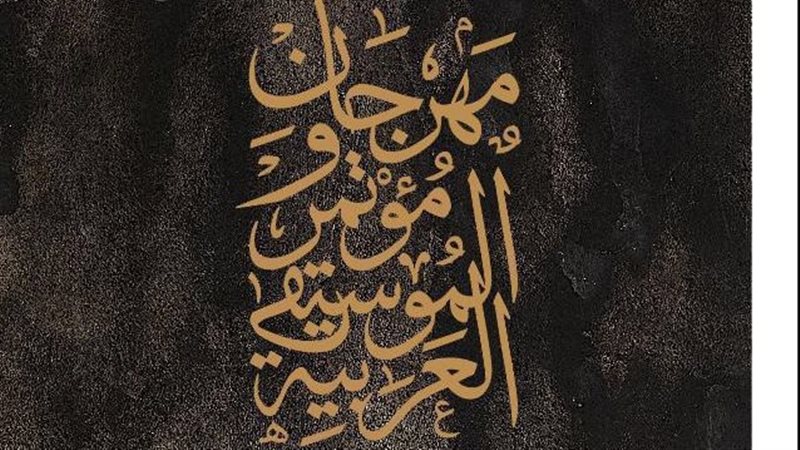 مَهْرجَان
و
مُؤْتمر
المُوسيقى
العَرَبيّة